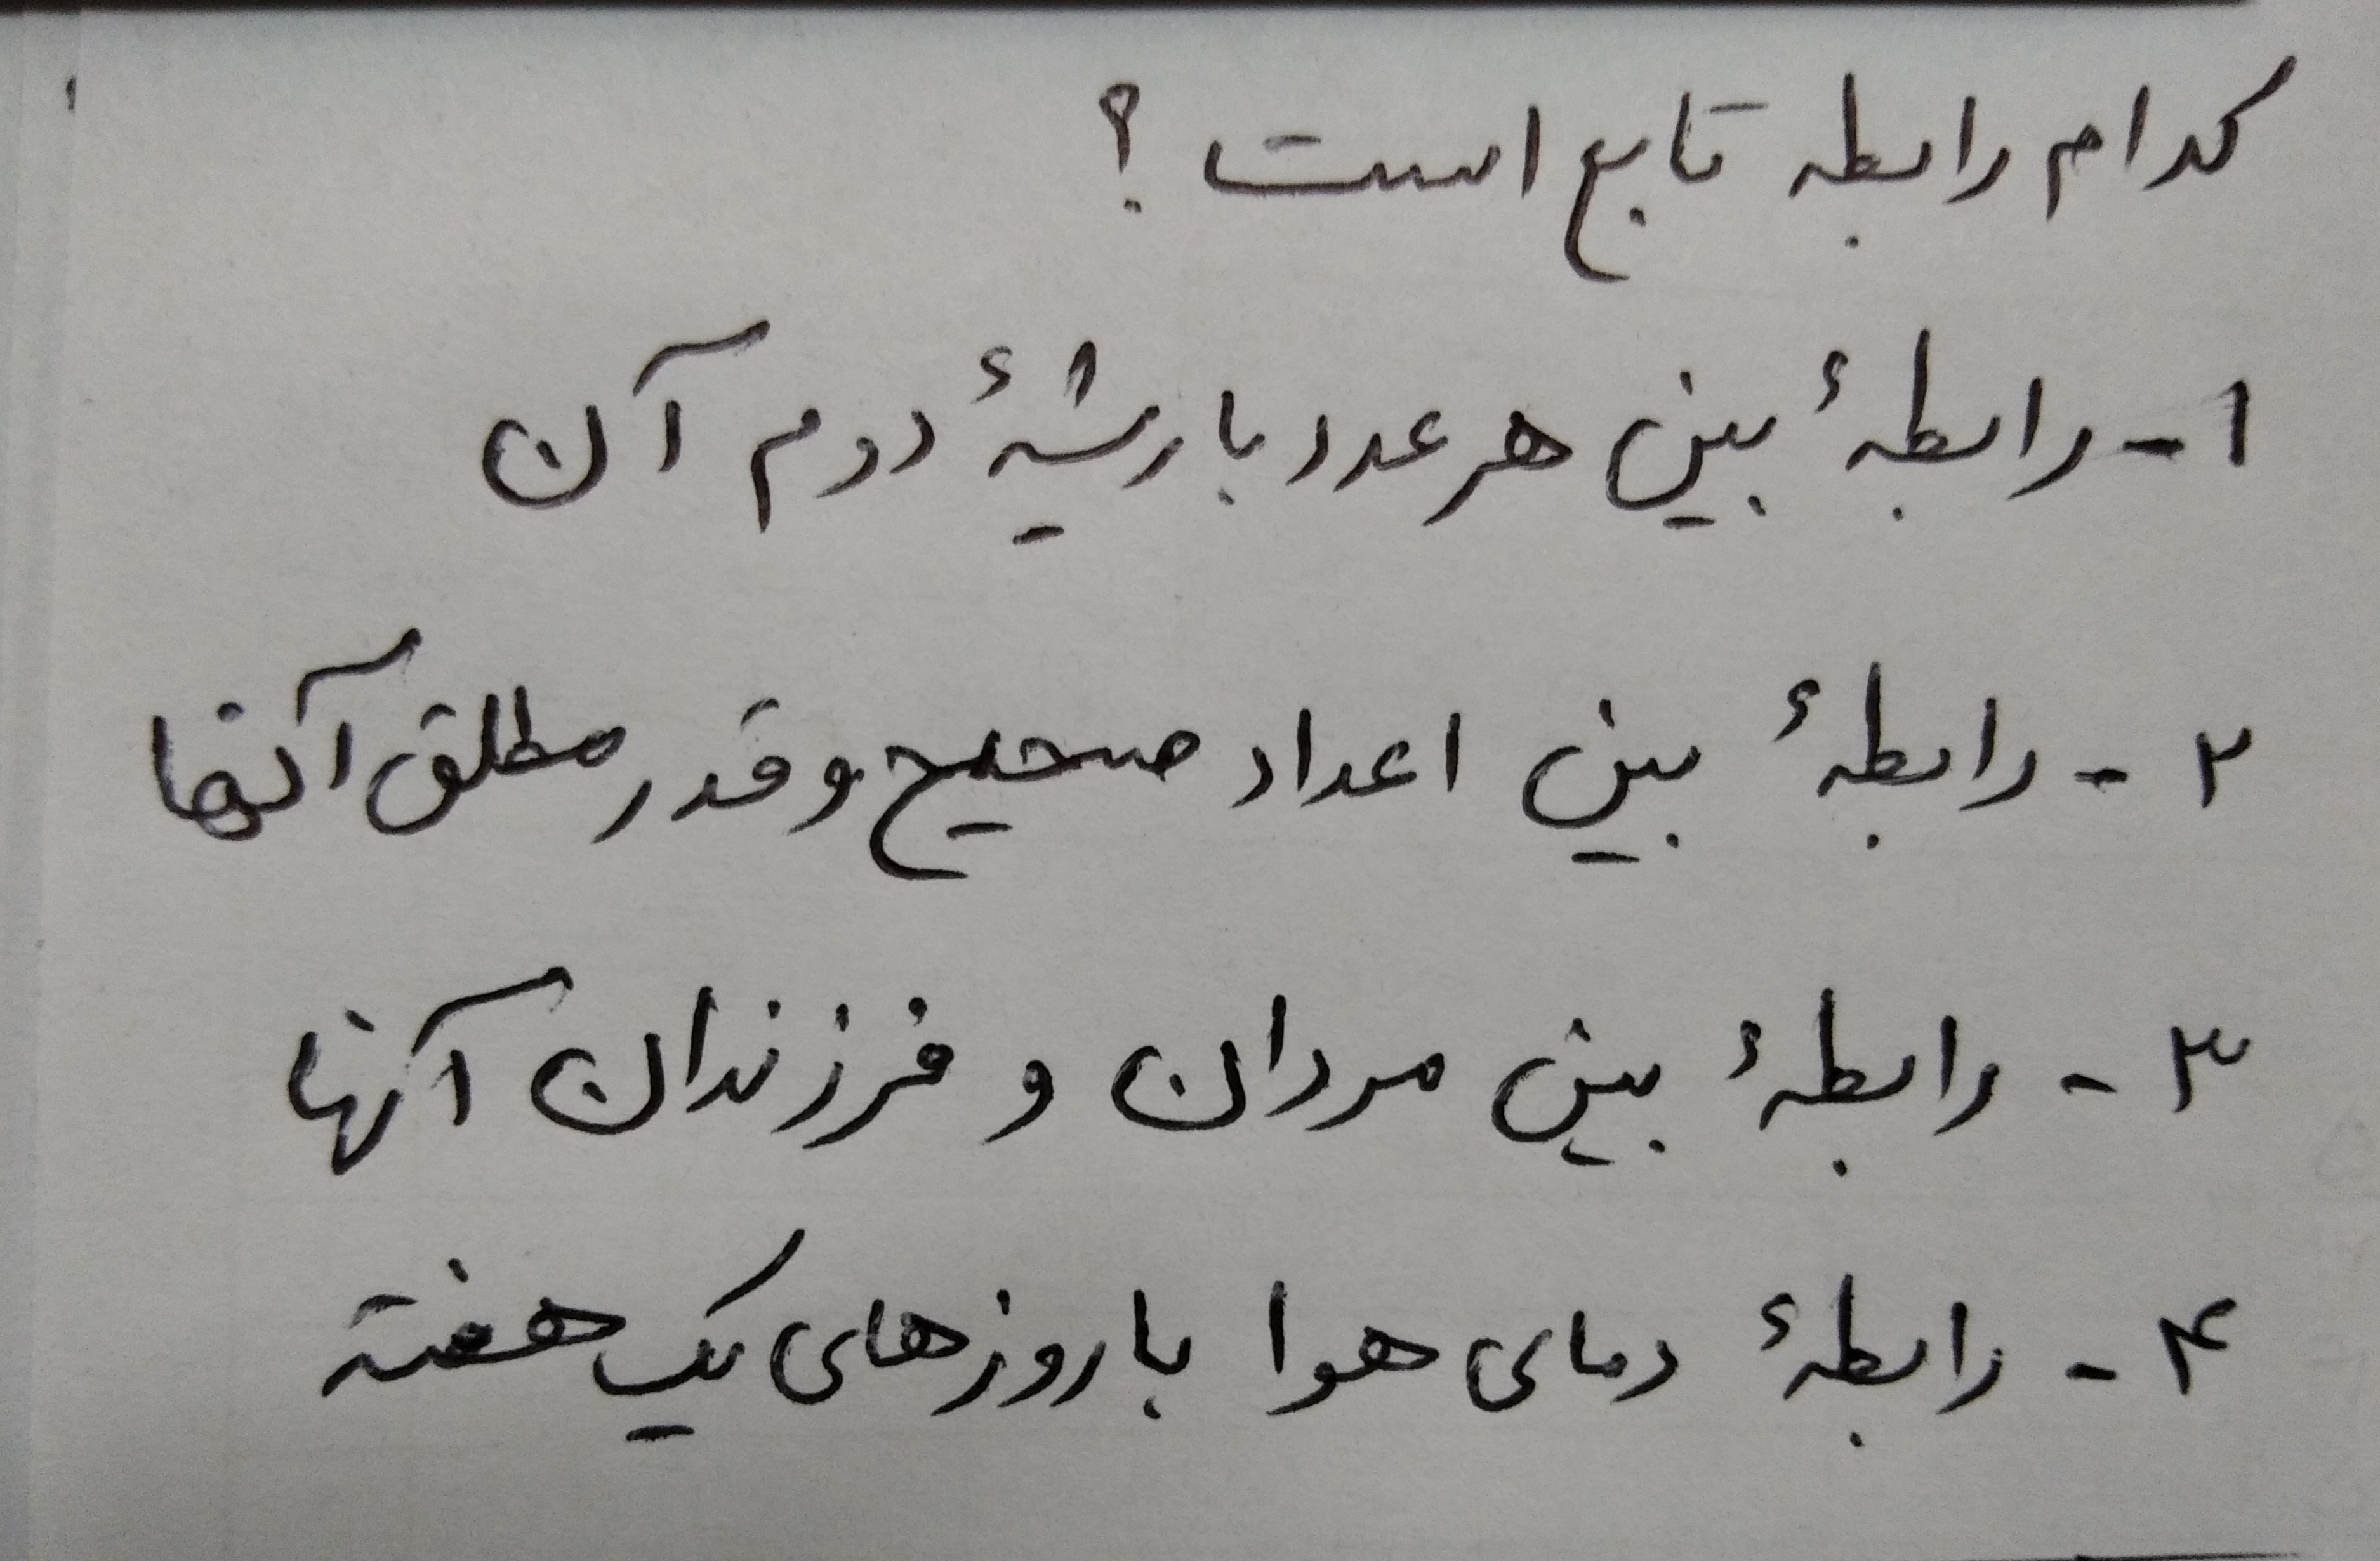 کدام رابطه تابع است؟
۱- رابطهٔ بین هر عدد با ریشهٔ دوم آن
۲- رابطهٔ بین اعداد صحیح و قدر مطلق آنها
۳- رابطهٔ بین مردان و فرزندان آنها
۴- رابطهٔ دمای هوا با روزهای یک هفته